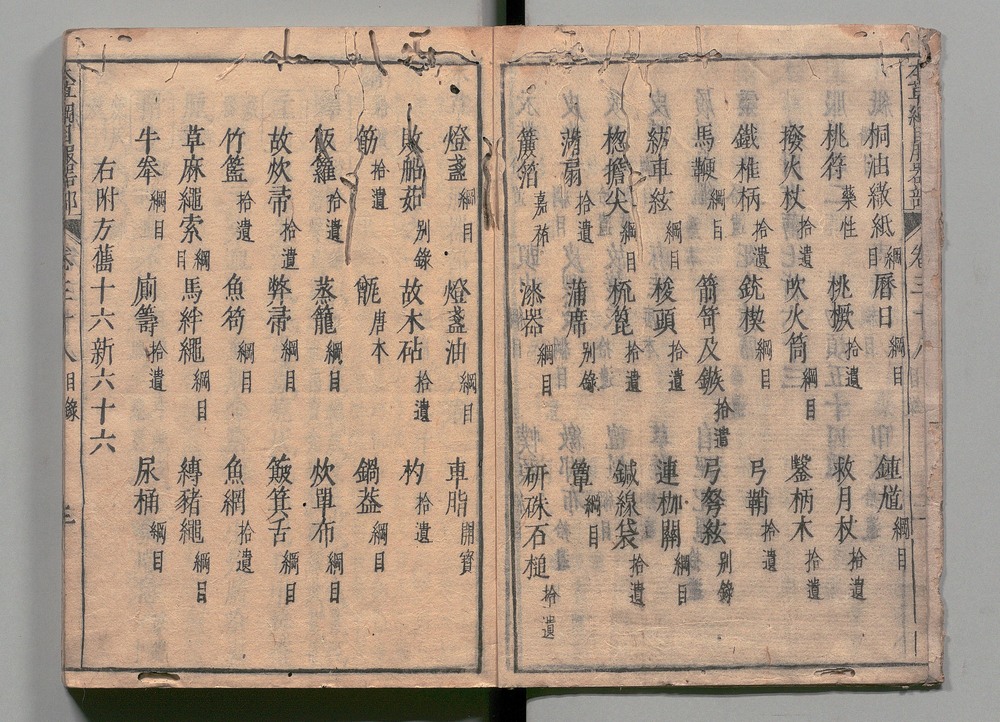 本草綱目服器部 卷三十八
桐油繖紙 綱目 曆日 綱目 鍾馗 綱目
桃符 藥性 桃橛 拾遺 救月杖 拾遺
撥火杖 拾遺 吹火筒 綱目 鑿柄木 拾遺
鐵椎柄 拾遺 銃楔 綱目 弓鞘 拾遺
馬鞭 綱目 箭笴及鏃 拾遺 弓弩絃 别錄
紡車絃 綱目 梭頭 拾遺 連枷關 綱目
楤擔尖 綱目 梳篦 拾遺 鍼線袋 拾遺
蒲扇 拾遺 蒲席 别錄 簟 綱目
簾箔 嘉祐 漆器 綱目 研硃石槌 拾遺
燈盞 綱目 燈盞油 綱目 車脂 開寶
敗船茹 别錄 故木砧 拾遺 杓 拾遺
筯 拾遺 甑 唐本 鍋蓋 綱目
飯籮 拾遺 蒸籠 綱目 炊單布 綱目
故炊帚 拾遺 弊帚 綱目 簸箕舌 綱目
竹籃 拾遺 魚笱 綱目 魚網 拾遺
草麻繩索 綱目 馬絆繩 綱目 縛豬繩 綱目
牛桊 綱目 廁籌 拾遺 尿桶 綱目
右附方舊十六新六十六
本草綱目服器部 卷三十八目錄